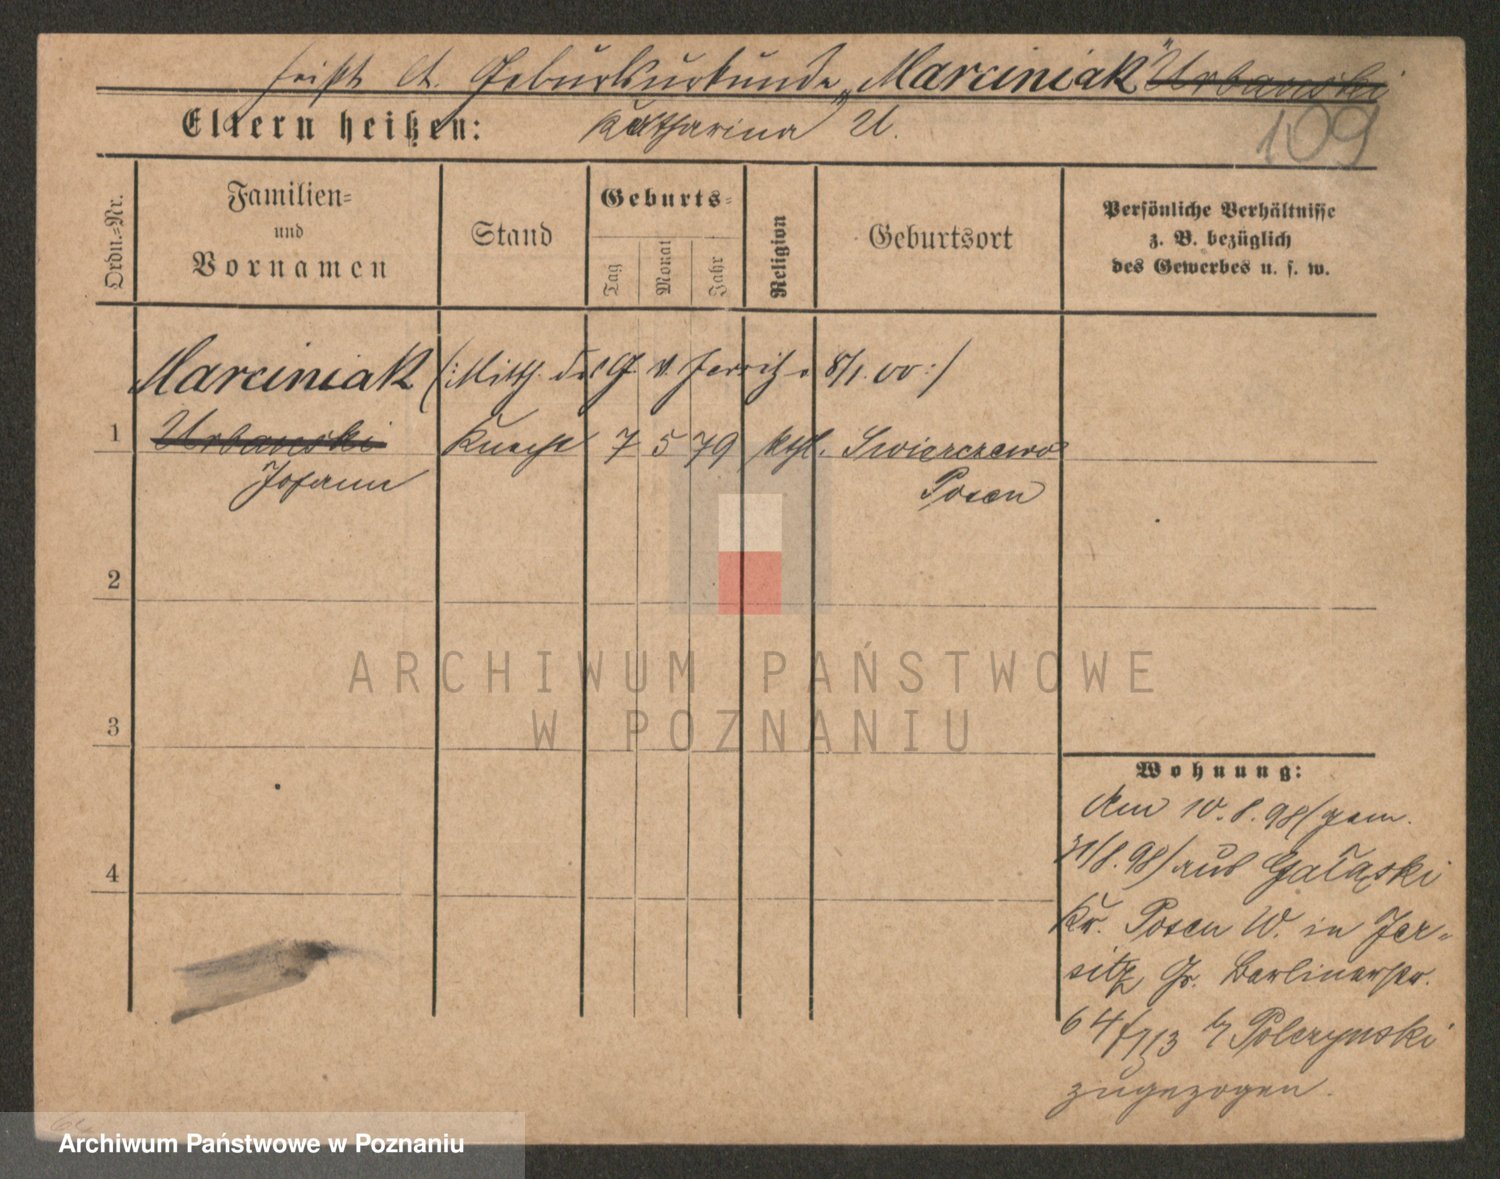 heißt lt. Geburtsurkunde „Marciniak“ Urbanski
Eltern heißen: Katharina U.
109
Ordn.=Nr.
Familien=
und
Vornamen
Stand
Geburts=
Tag
Monat
Jahr
Religion
Geburtsort
Persönliche Verhältnisse
z. B. bezüglich
des Gewerbes u. s. w.
Marciniak (: Mitth. des G. V. Jersitz v. 8/1. 00 :)
1 Urbanski Knecht 7 5 79 kthl. Swierczewo
Johann Posen
2
3
4
Wohnung:
Am 10. 8. 98 /gem.
31/8. 98/ aus
Kr. Posen W. in Jer-
sitz, Gr. Berlinerstr.
64 b/ Polczynski
zugezogen.
ARCHIWUM PAŃSTWOWE
W POZNANIU
Archiwum Państwowe w Poznaniu